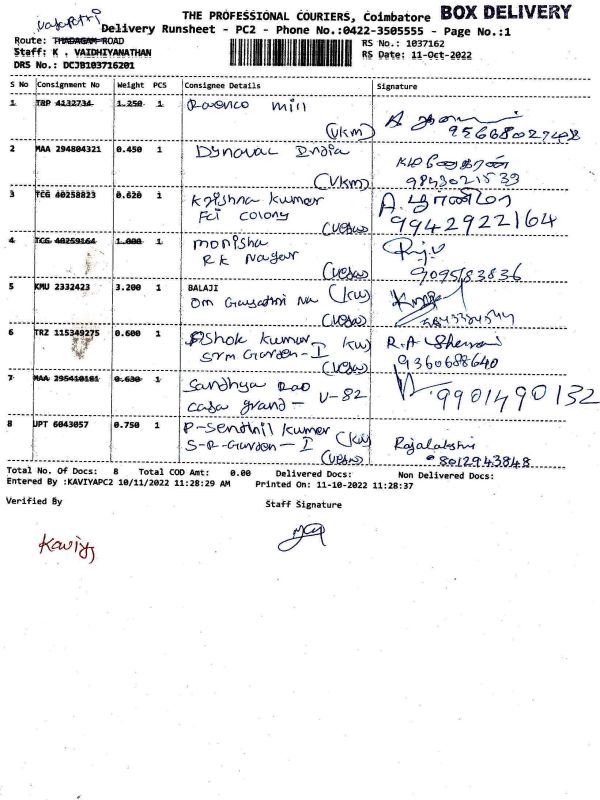 THE PROFESSIONAL COURIERS, Coimbatore BOX DELIVERY
Delivery Runsheet - PC2 - Phone No.:0422-3505555 - Page No.:1
Route: THADAGAM ROAD
RS No.: 1037162
Staff: K . VAIDHIYANATHAN
RS Date: 11-Oct-2022
DRS No.: DCJB103716201
S No Consignment No Weight PCS Consignee Details Signature
1 T&P 4132734 1.250 1 mill
(VKM)
2 MAA 294804321 0.450 1 India
(VKM) 9843021539
3 TCG 40258823 0.620 1 Krishna Kumar
FCI colony 9942922164
4 TCG 40259164 1.000 1 monisha
RK Nagar
9095183836
5 KMU 2332423 3.200 1 BALAJI
Om
6 TRZ 115349275 0.600 1 Ashok Kumar
Garden - I 9360688640
7 MAA 295410181 0.630 1 Sandhya Rao
casa grand - U-82 9901490132
8 JPT 6043057 0.750 1 P-Senthil Kumar
S-R-Garden - I Rajalakshmi
8012943848
Total No. Of Docs: 8 Total COD Amt: 0.00 Delivered Docs: Non Delivered Docs:
Entered By :KAVIYAPC2 10/11/2022 11:28:29 AM Printed On: 11-10-2022 11:28:37
Verified By Staff Signature
Kaviya